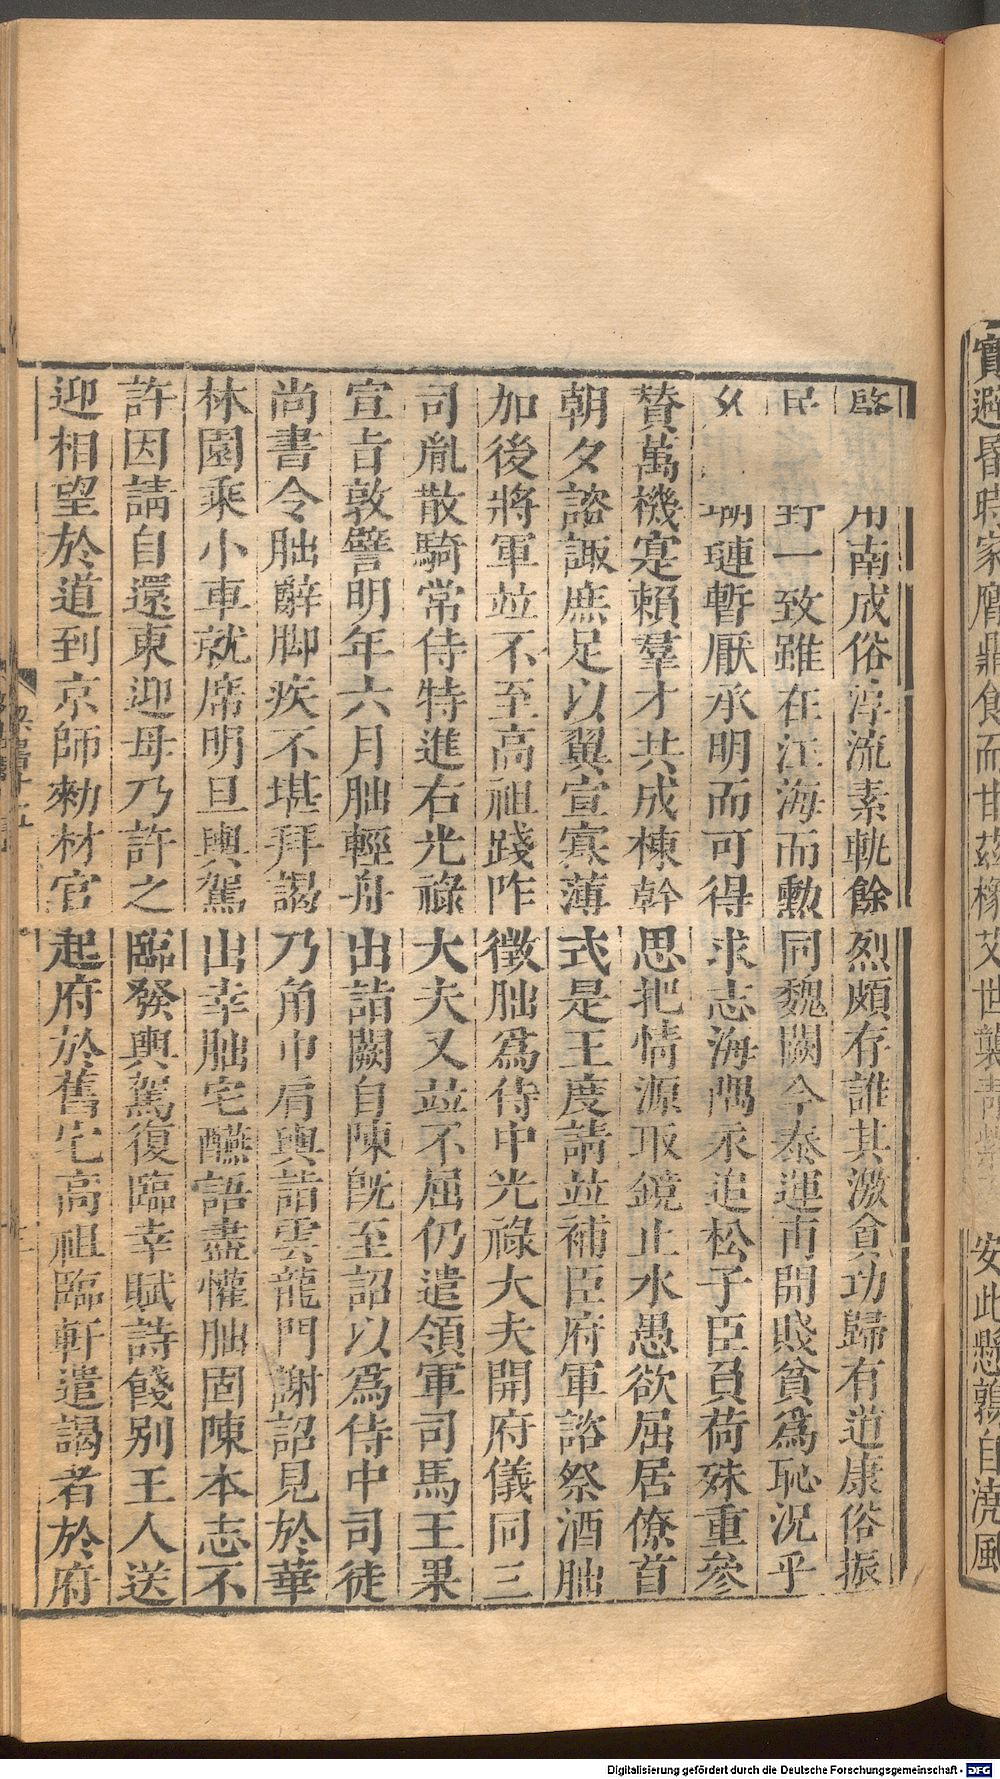 實避昏時家膺鼎食而甘茲橡艾世襲青紫　安此懸鶉自澆風
啟　用南成俗淳流素軌餘烈頗存誰其激貪功歸有道康俗振
民　野一致雖在江海而勳同魏闕今泰運甫開賤貧爲恥況乎
　瑚璉暫厭承明而可得求志海隅永追松子臣負荷殊重參
贊萬機寔賴羣才共成棟幹思挹情源取鏡止水愚欲屈居僚首
朝夕諮諏庶足以翼宣寡薄式是王度請並補臣府軍諮祭酒朏
加後將軍並不至高祖踐阼徵朏爲侍中光祿大夫開府儀同三
司胤散騎常侍特進右光祿大夫又並不屈仍遣領軍司馬王果
宣旨敦譬明年六月朏輕舟出詣闕自陳旣至詔以爲侍中司徒
尚書令朏辭脚疾不堪拜謁乃角巾肩輿詣雲龍門謝詔見於華
林園乘小車就席明旦輿駕出幸朏宅醼語盡懽朏固陳本志不
許因請自還東迎母乃許之臨發輿駕復臨幸賦詩餞別王人送
迎相望於道到京師勑材官起府於舊宅高祖臨軒遣謁者於府
Digitalisierung gefördert durch die Deutsche Forschungsgemeinschaft - DFG